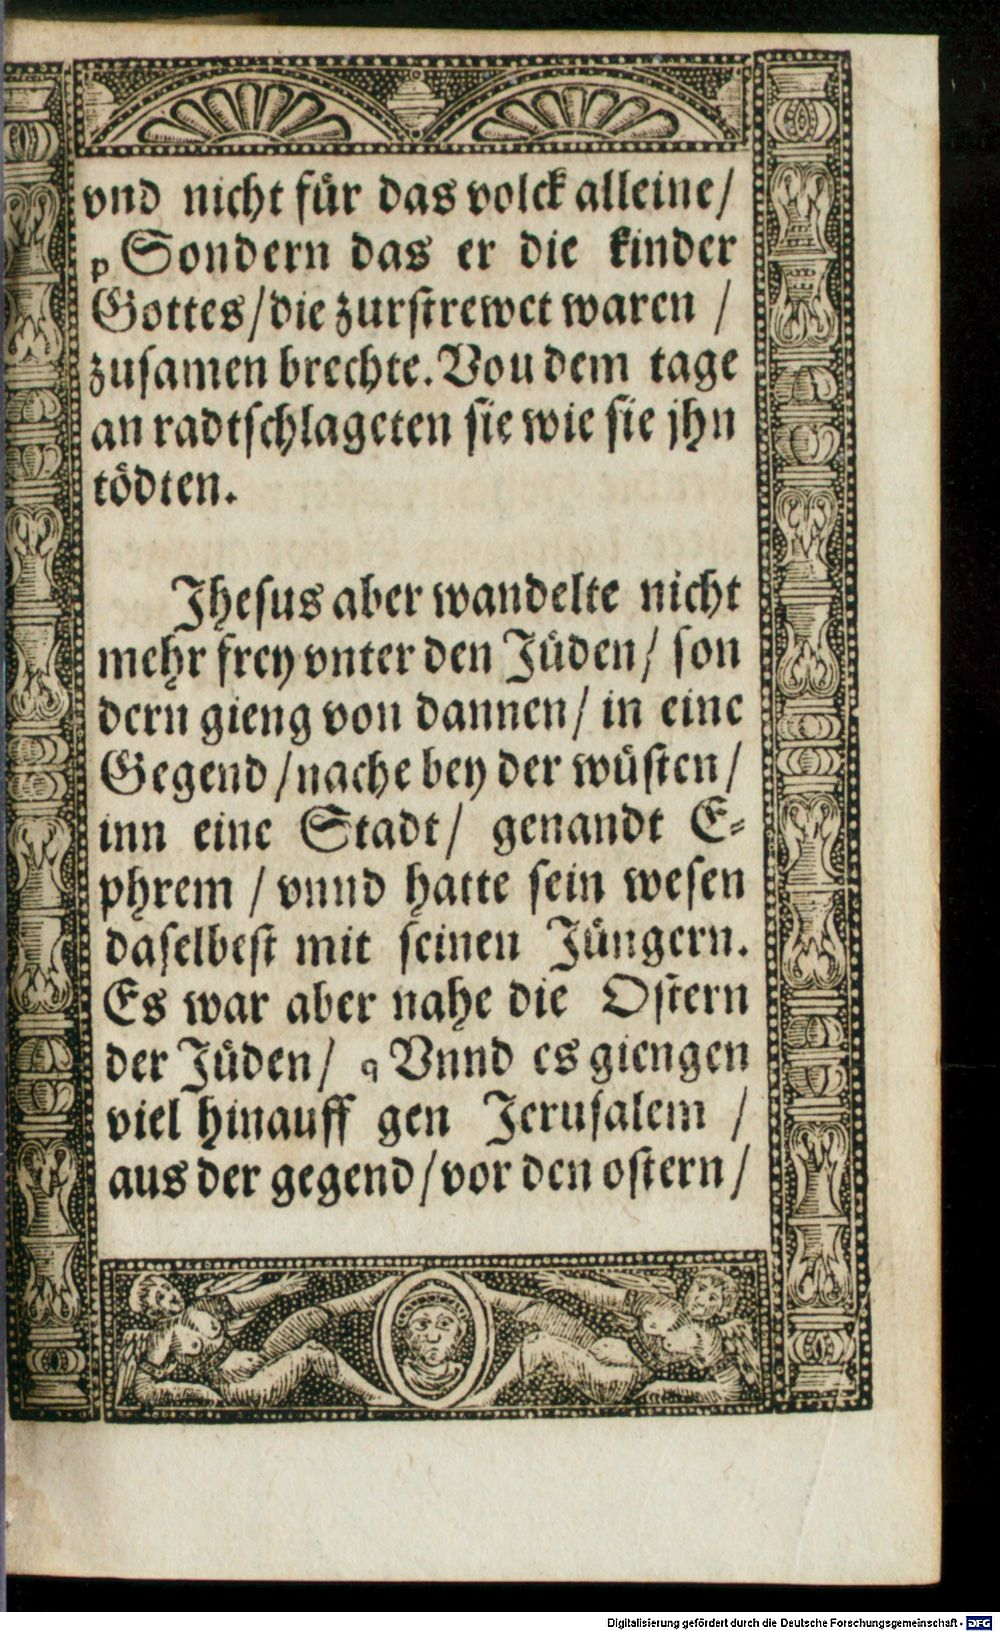 vnd nicht für das volck alleine/
p Sondern das er die kinder
Gottes/die zurstrewet waren /
zusamen brechte. Vou dem tage
an radtschlageten sie wie sie jhn
tödten.
Jhesus aber wandelte nicht
mehr frey vnter den Jüden/ son
dern gieng von dannen/ in eine
Gegend/nache bey der wüsten/
inn eine Stadt/ genandt E⸗
phrem / vnnd hatte sein wesen
daselbest mit seinen Jüngern.
Es war aber nahe die Ostern
der Jüden/ q Vnnd es giengen
viel hinauff gen Jerusalem /
aus der gegend/vor den ostern/
Digitalisierung gefördert durch die Deutsche Forschungsgemeinschaft - DFG